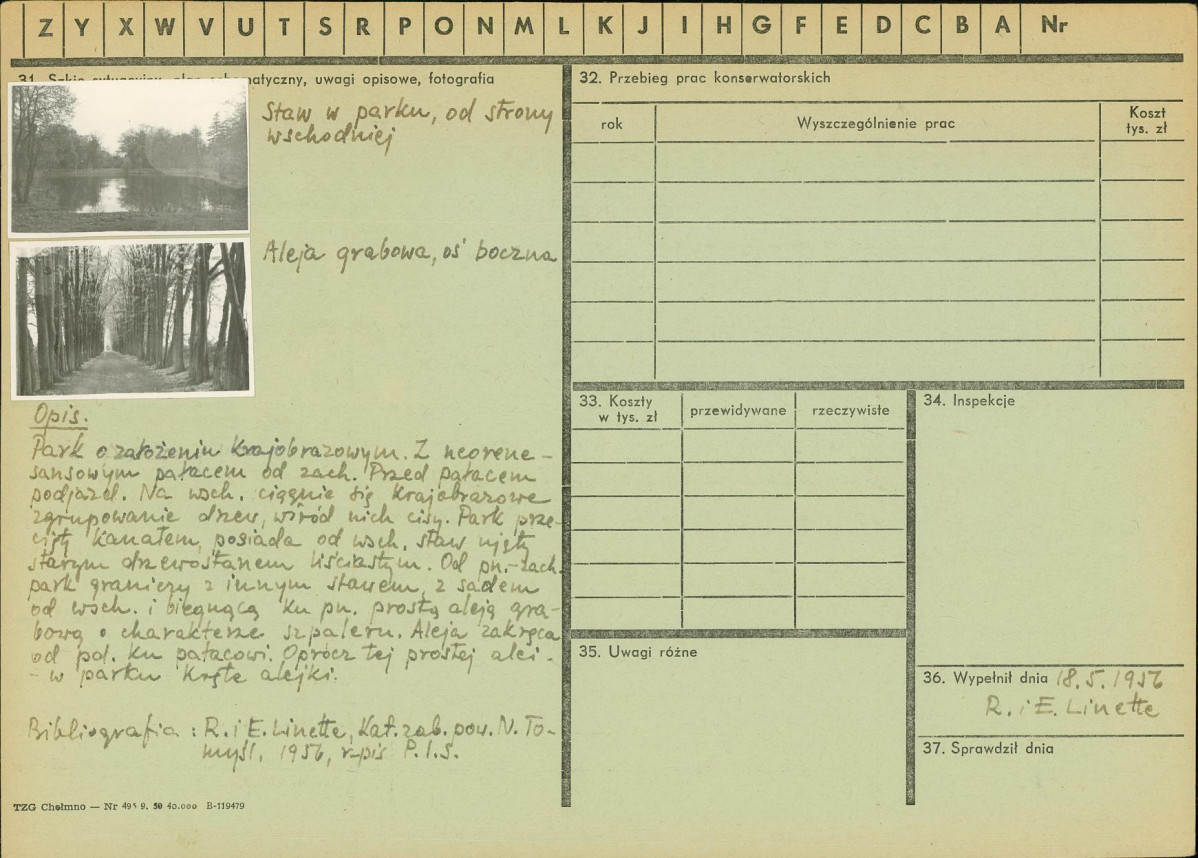 Z Y X W V U T S R P O N M L K J I H G F E D C B A Nr
31. Szkic sytuacyjny, plan schematyczny, uwagi opisowe, fotografia
Staw w parku, od strony
wschodniej
Aleja grabowa, oś boczna
Opis.
Park o założeniu krajobrazowym. Z neorene-
sansowym pałacem od zach. Przed pałacem
podjazd. Na wsch. ciągnie się krajobrazowe
zgrupowanie drzew, wśród nich cisy. Park prze-
cięty kanałem, posiada od wsch. staw ujęty
starym drzewostanem liściastym. Od pn.-zach.
park graniczy z innym stawem, z sadem
od wsch. i biegnącą ku pn. prostą aleją gra-
bową o charakterze szpaleru. Aleja zakręca
od pd. ku pałacowi. Oprócz tej prostej alei -
- w parku kręte alejki.
Bibliografia : R. i E. Linette, Kat. zab. pow. N. To-
myśl, 1956, r-pis P.I.S.
TZG Chełmno — Nr 495 9. 50 40.000 B-119479
32. Przebieg prac konserwatorskich
rok
Wyszczególnienie prac
Koszt
tys. zł
33. Koszty
w tys. zł
przewidywane
rzeczywiste
34. Inspekcje
35. Uwagi różne
36. Wypełnił dnia 18.5.1956
R. i E. Linette
37. Sprawdził dnia